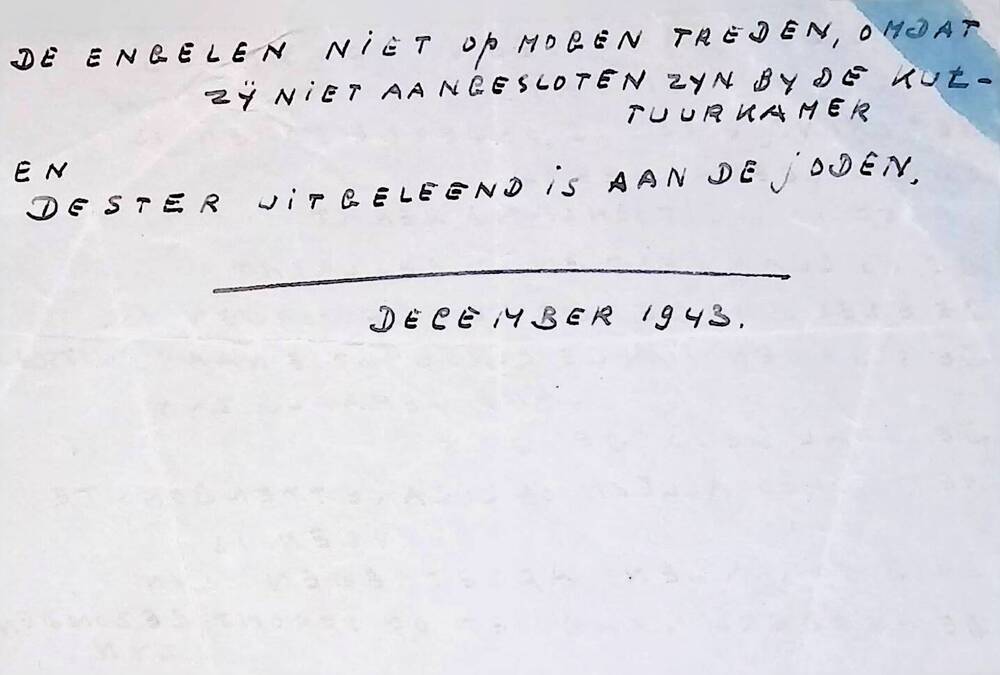 DE ENGELEN NIET OP MOGEN TREDEN, OMDAT
ZŸ NIET AANGESLOTEN ZYN BY DE KUL-
TUURKAMER
EN
DE STER UITGELEEND IS AAN DE JODEN.
DECEMBER 1943.